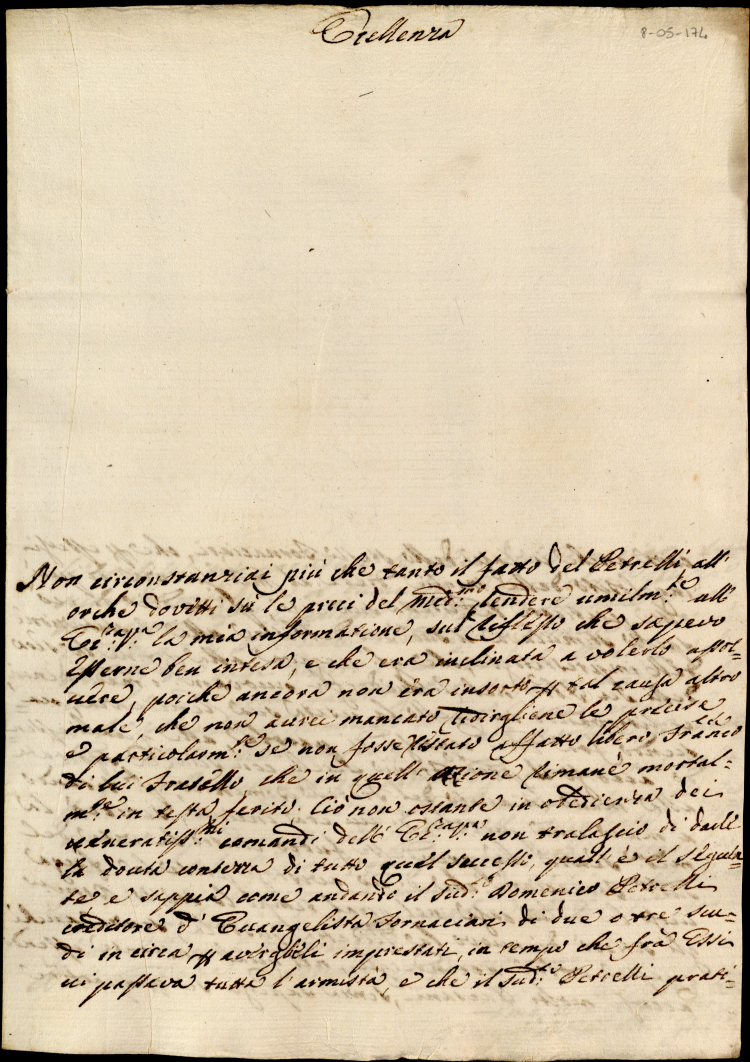 Eccellenza
8-05-174
Non circonstanziai più che tanto il fatto del Petrelli all'
orche dovetti sù le preci del med.mo rendere umilm.te all'
Ecc.a V.a la mia informatione, sul riflesso che sapevo
esserne ben intesa, e che era inclinata a volerlo assol-
vere, poiche ancora non era insorto p tal causa altro
male, che non aurei mancato ridirgliene le precise
e particolarm.te se non fosse ristato affatto libero Fran.co
di lui Fratello, che in quell' azione rimane mortal-
m.te in testa ferito. Ciò non ostante in obedienza dei
veneratiss.mi comandi dell' Ecc.a V.a non tralascio di darle
la douta contezza di tutto quel successo, quall' è il seguen-
te e seppia come andando il sud.o Domenico Petrelli
creditore d' Euangelista Fornaciari di due o tre scu-
di in circa p avergleli imprestati, in tempo che frà Essi
ui passava tutta l'armista, e che il sud.o Petrelli prati-